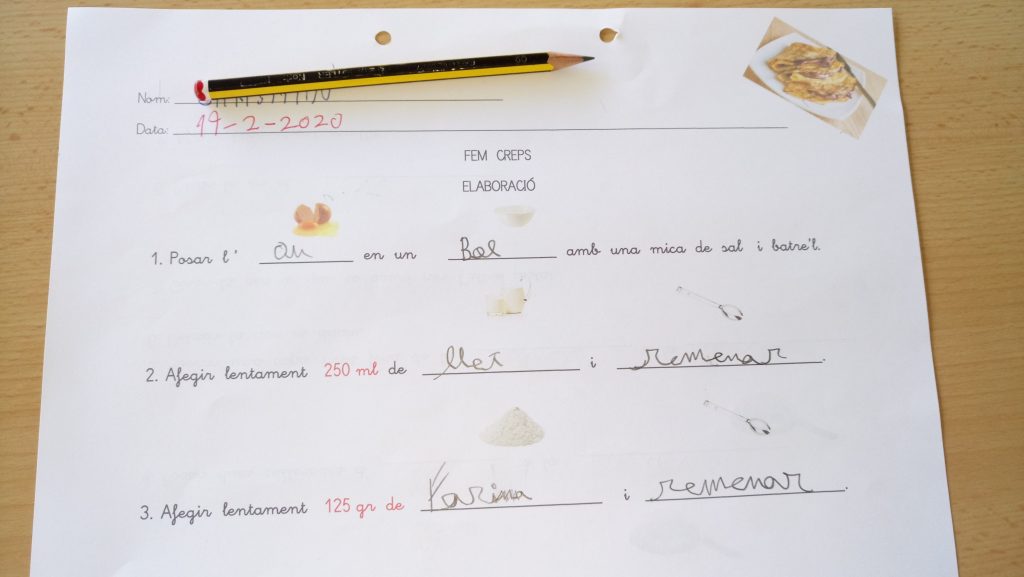 Nom:
Data: 19-2-2020
FEM CREPS
ELABORACIÓ
1. Posar l' ou en un Bol amb una mica de sal i batre'l.
2. Afegir lentament 250 ml de llet i remenar.
3. Afegir lentament 125 gr de Farina i remenar.